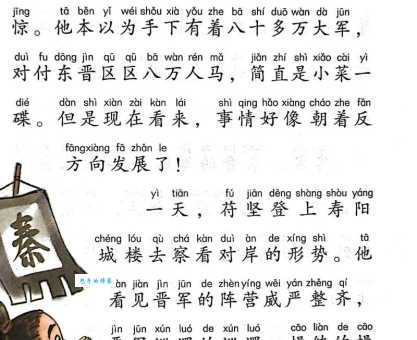 jīng tā běn yǐ wéi shǒu xià yǒu zhe bā shí duō wàn dà jūn
惊。他本以为手下有着八十多万大军，
duì fu dōng jìn qū qū bā wàn rén mǎ jiǎn zhí shì xiǎo cài yì
对付东晋区区八万人马，简直是小菜一
dié dàn shì xiàn zài kàn lái shì qing hǎo xiàng cháo zhe fǎn
碟。但是现在看来，事情好像朝着反
fāngxiàng fā zhǎn le
方向发展了！
yì tiān fú jiān dēng shàng shòu yáng
一天，苻坚登上寿阳
chéng lóu qù chá kàn duì àn de xíng shì tā
城楼去察看对岸的形势。他
秦
àn jiàn jìn jūn de zhèn yíng wēi yán zhěng qí
看见晋军的阵营威严整齐，
jìn jūn xùn luó de xùn luó cāo liàn de cāo